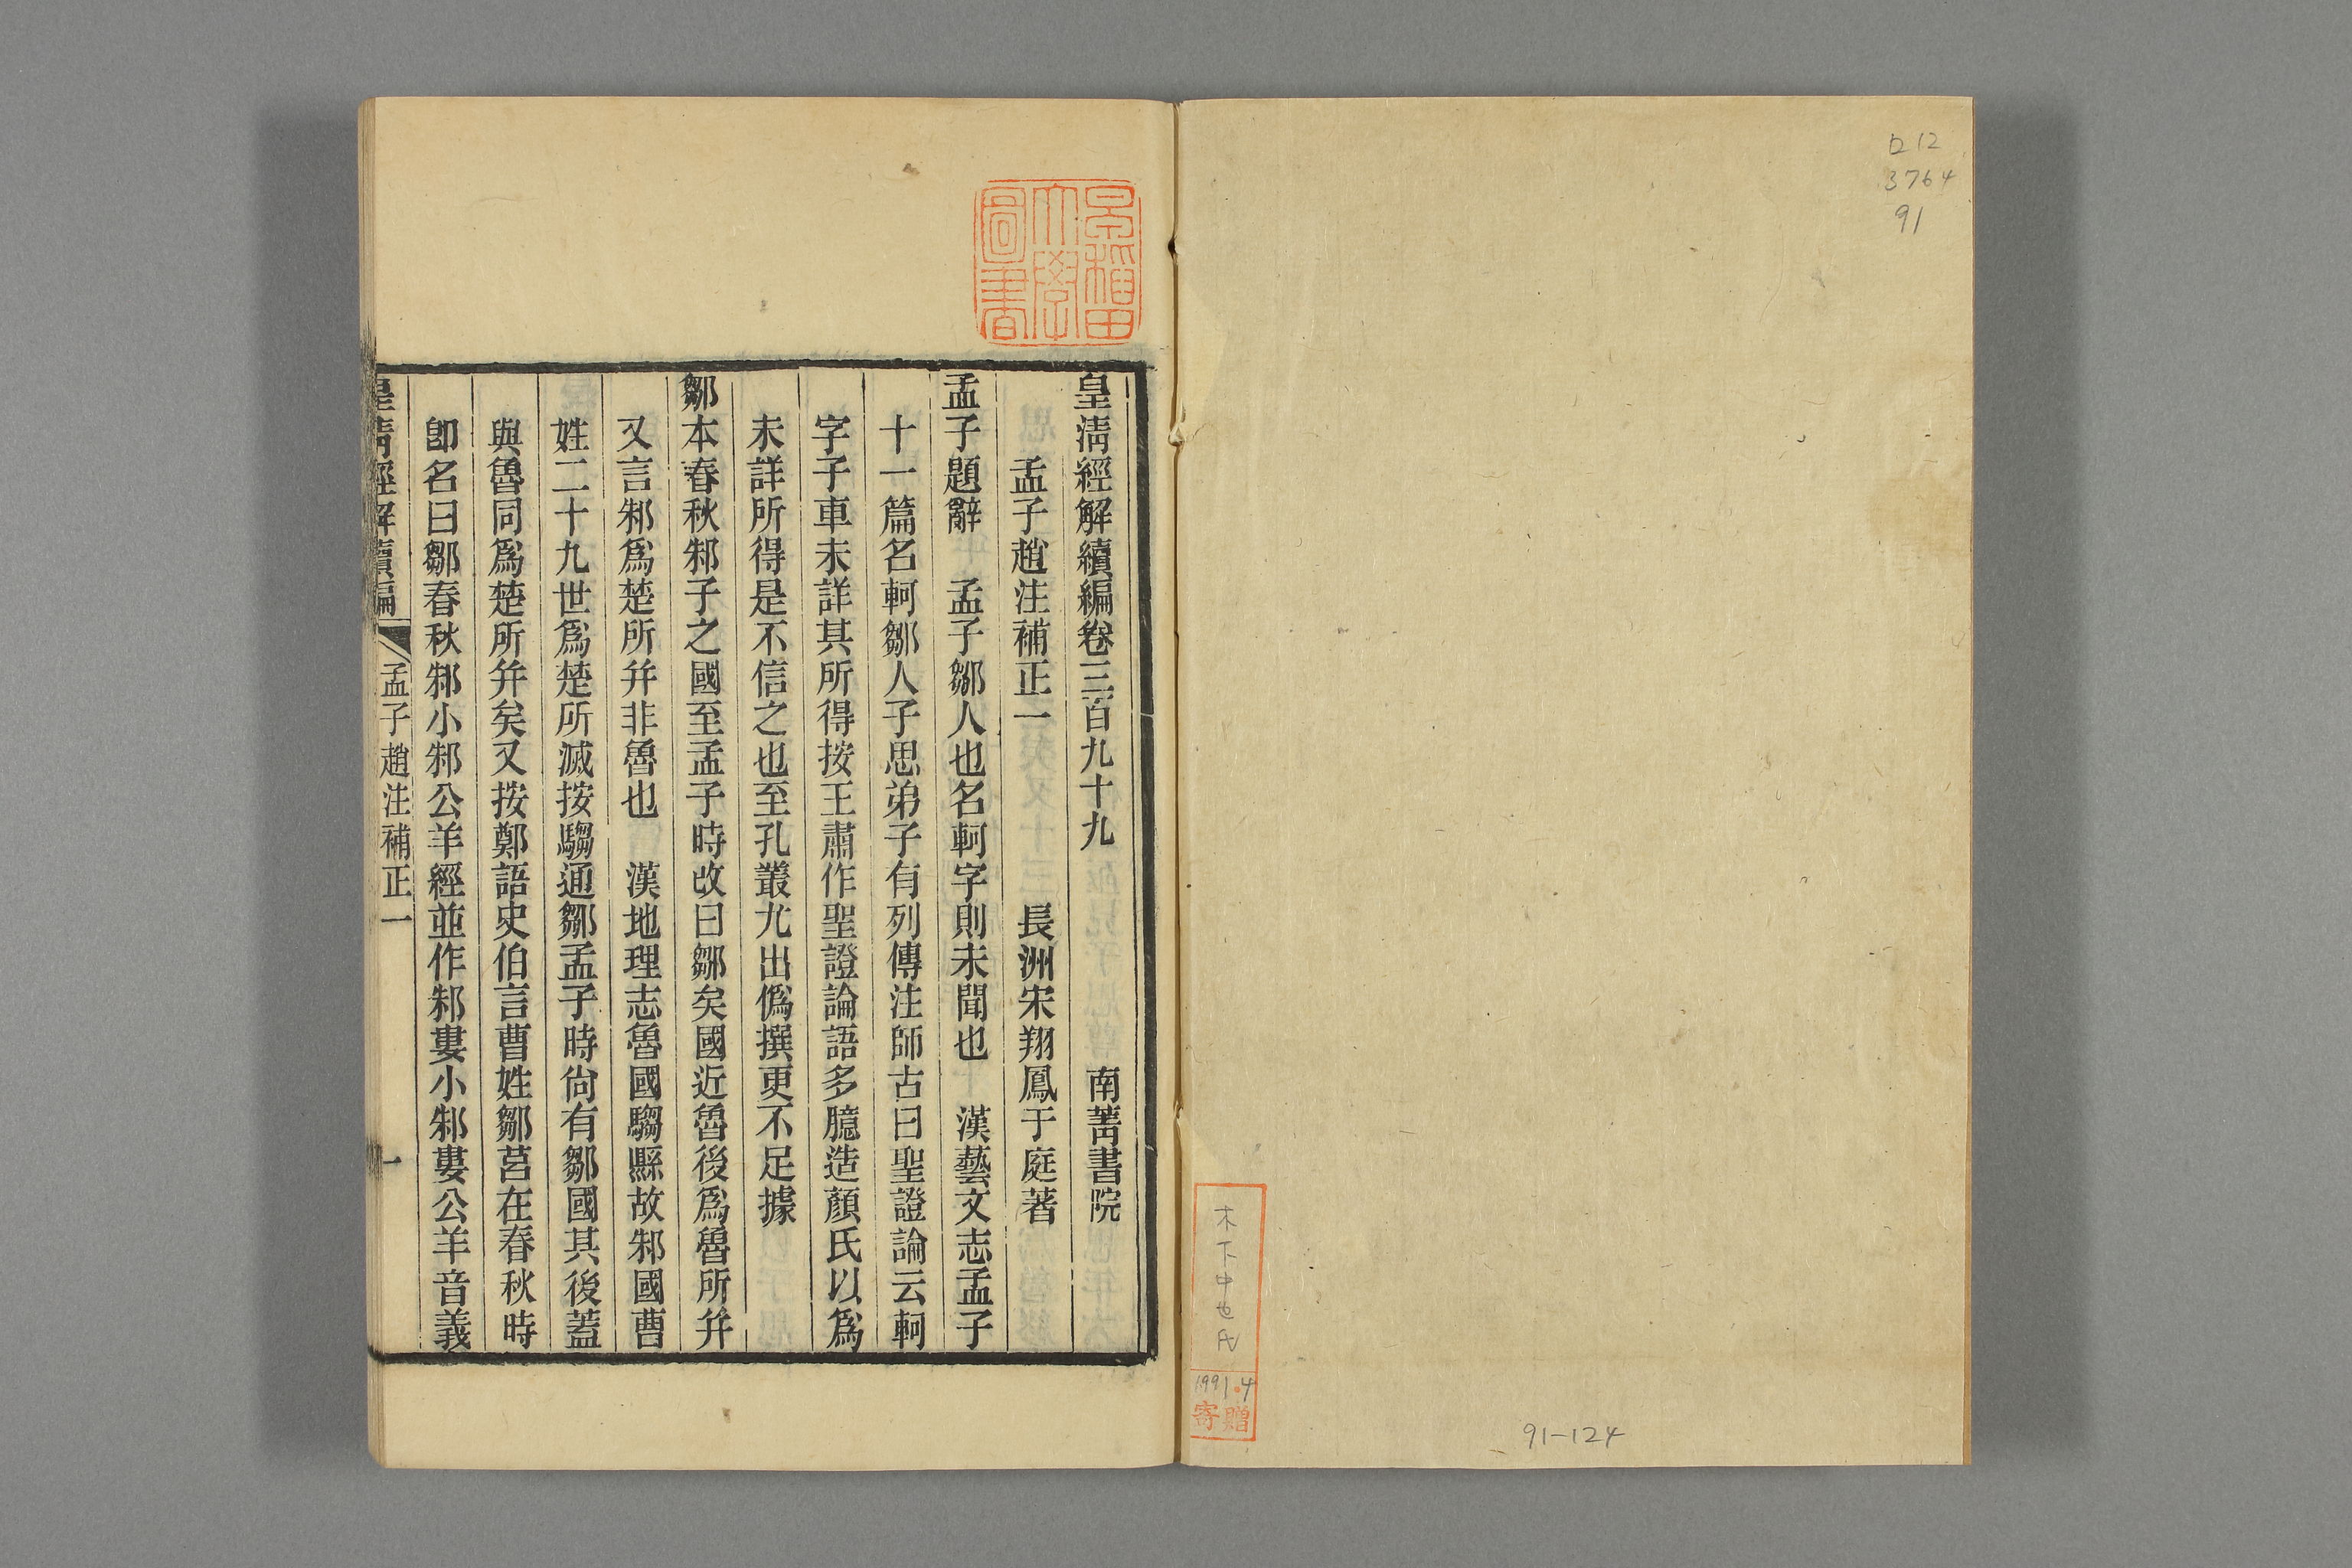 ロ12
3764
91
木下中也氏
1991.4
寄贈
91-124
早稲田大學圖書
皇淸經解續編卷三百九十九 南菁書院
孟子趙注補正一 長洲宋翔鳳于庭著
孟子題辭 孟子鄒人也名軻字則未聞也 漢藝文志孟子
十一篇名軻鄒人子思弟子有列傳注師古曰聖證論云軻
字子車未詳其所得按王肅作聖證論語多臆造顏氏以爲
未詳所得是不信之也至孔叢尤出僞撰更不足據
鄒本春秋邾子之國至孟子時改曰鄒矣國近魯後爲魯所幷
又言邾爲楚所幷非魯也 漢地理志魯國騶縣故邾國曹
姓二十九世爲楚所滅按騶通鄒孟子時尙有鄒國其後蓋
與魯同爲楚所幷矣又按鄭語史伯言曹姓鄒莒在春秋時
卽名曰鄒春秋邾小邾公羊經並作邾婁小邾婁公羊音義
皇淸經解續編 孟子趙注補正一 一